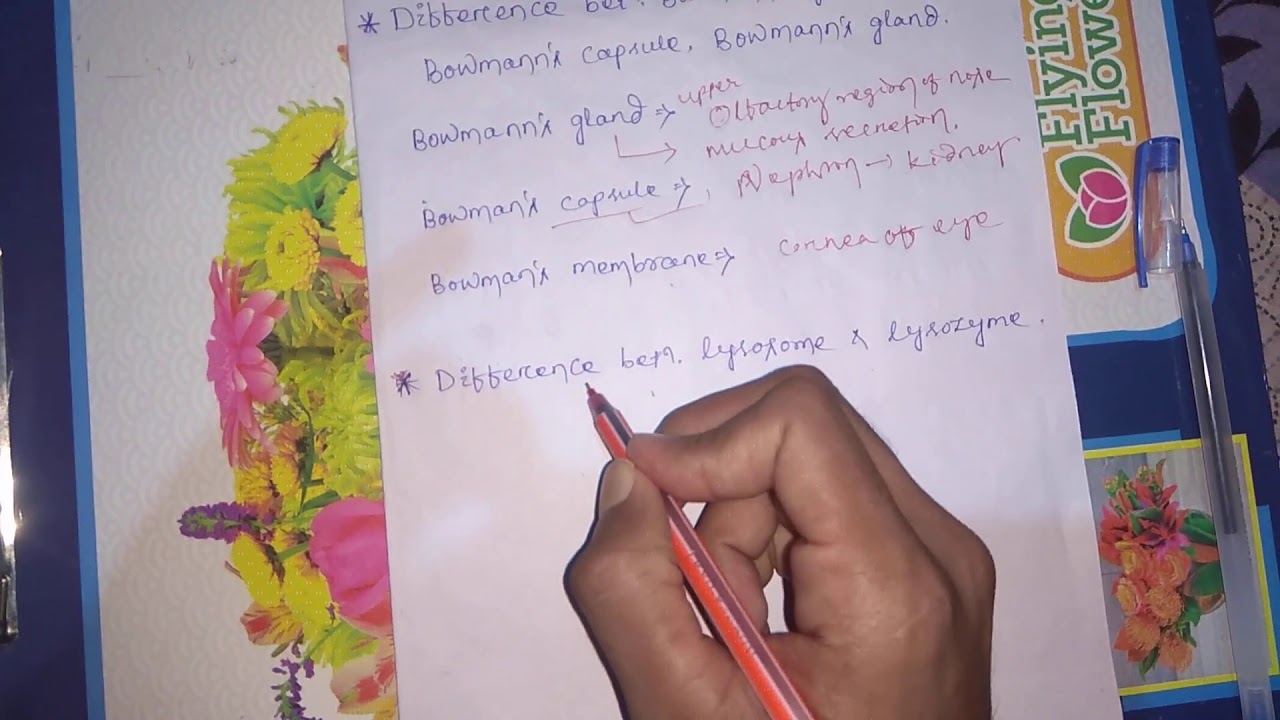 * Difference bet.
Bowmann's capsule, Bowmann's gland.
Bowmann's gland ⇒ upper Olfactory region of nose
↳ mucous secretion.
Bowman's capsule ⇒, Nephron → kidney
Bowman's membrane ⇒ cornea of eye
* Difference betn. lysosome & lysozyme.
Flying
Flowe